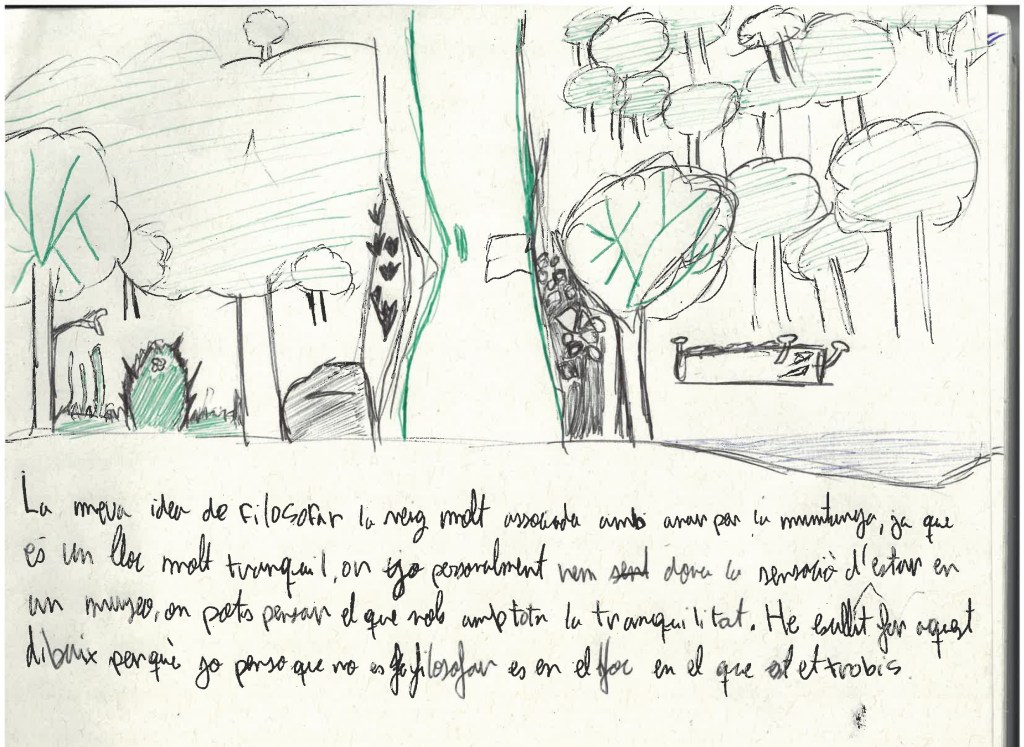 La meva idea de filosofar la veig molt associada amb anar per la muntanya, ja que
és un lloc molt tranquil, on yo personalment sent dona la sensació d'estar en
un museo, on pots pensar el que vols amb tota la tranquilitat. He escullit fer aquest
dibuix perquè yo penso que no es filosofar es en el lloc en el que et trobis.